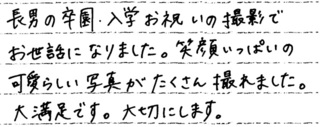 長男の卒園・入学お祝いの撮影で
お世話になりました。笑顔いっぱいの
可愛らしい写真がたくさん撮れました。
大満足です。大切にします。